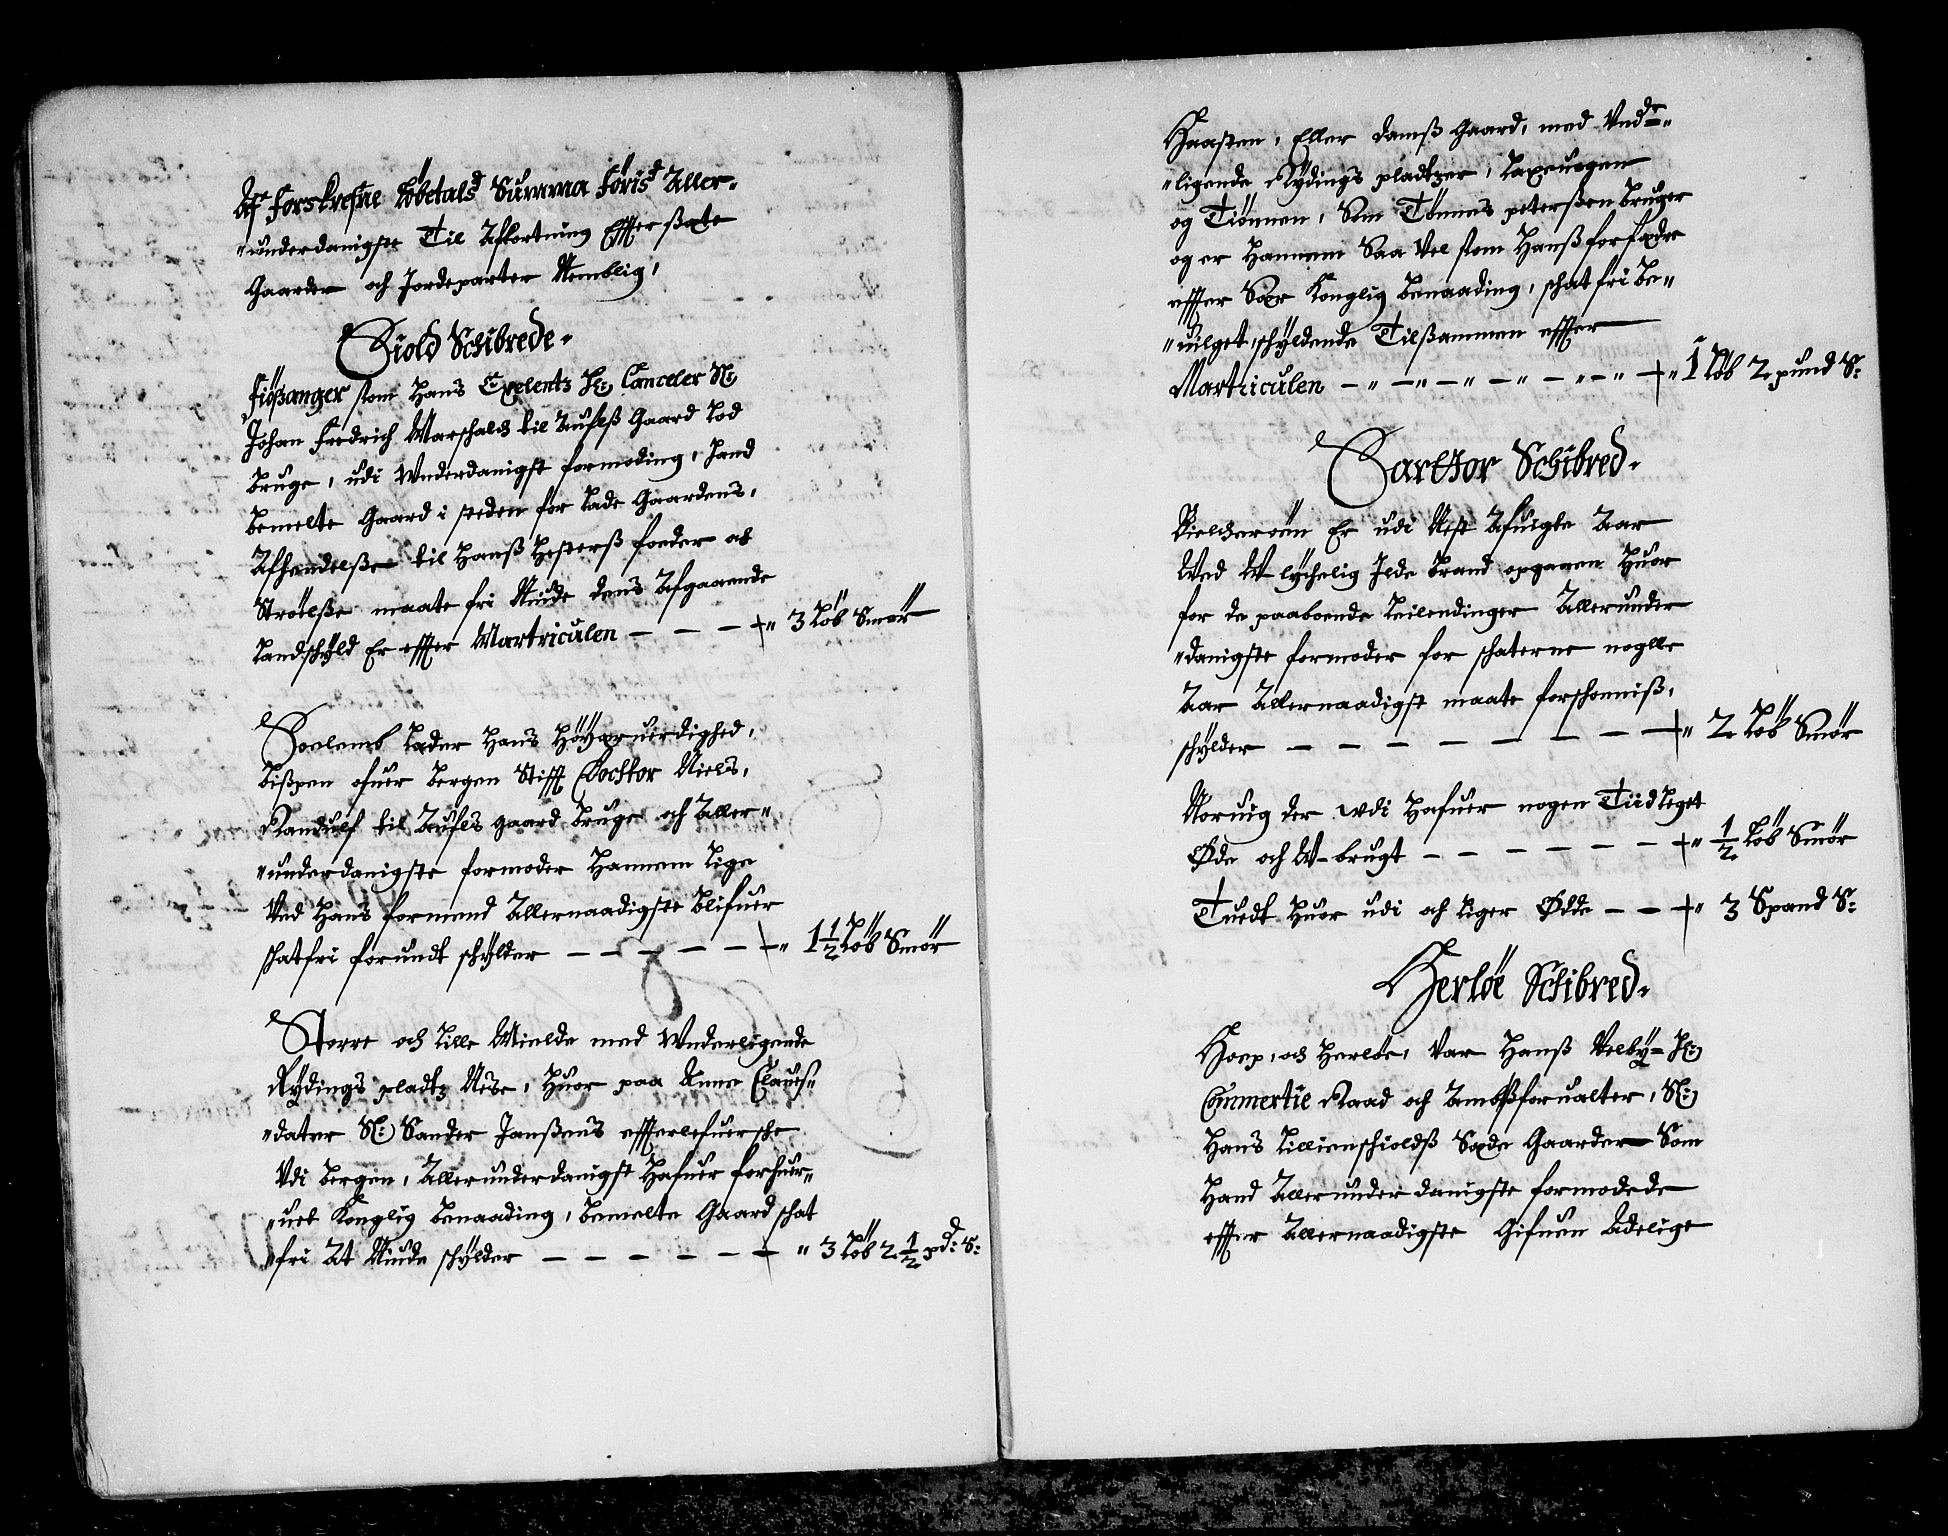 Af Forskrefne Löbetals Summa Föris Aller-
"underdanigste Til Afkortning Effterßate
Gaarder och Jordeparter Nemblig,
Siold Schibrede.
Fiößanger som Hans Excelentz H: Canceler Sl:
Johan Fredrich Marschalch til Aufls Gaard Lod
Bruge, udi Underdanigst formoding, hand
bemelte Gaard i steden for Lade Gaardens,
Afhendelße til Hanß Hesters foeder och
Ströelße maate fri Niude dens Afgaaende
Landschyld Er effter Martriculen - - - " 3 Löb Smör
Soelemb Lader Hans Höyærverdighed,
Bißpen ofuer Bergen Stifft Dochtor Niels,
Randulf til Aufls gaard Bruge och Aller"
"underdanigste formoder Hannem lige
Ved Hans formend Allernaadigste Blifuer
schatfri forundt schylder - - - - - " 1 1/2 Löb Smör
Storre och Lille Mielde med Underligende
Rydings pladtz Nese, Huor paa Anne Clauis"
"dater Sl: Sander Janßens effterlefuersche
Vdi Bergen, Allerunderdanigst Hafuer forhuer"
"uet Konglig Benaading, bemelte Gaard schat
"fri At Niude schylder - - - - - - " 3 Löb 2 1/2 pd: S:
Haasten, Eller Damß Gaard, med Unde-"
"ligende Rydings pladtzer, Laxeuogen
og Tiönnen, Som Tönnes peterßen Bruger
og er Hannem Saa Vel som Hanß forfæder
effter Sær Konglig Benaading, schatfri Be"
"uilget, schyldende Tilßammen effter
Martriculen - " - " - " - " - " - " 1 Löb 2 pund S:
Sarthor Schibred.
Kielchervem Er udi Nest Afuigte Aar
Ved U-lychelig Ilde Brand opgaaen Huor
for de paaboende Leilendinger Allerunder
"danigste formoder for schaterne noglle
Aar Allernaadigst maate forschonniß,
schylder - - - - - - - - " 2 Löb Smör
Noruig der udi Hafuer nogen Tiid leget
Øde och U-brugt - - - - - - " 1/2 Löb Smör
Tuedt Huor udi och liger Ødde - - - " 3 Spand S:
Herlöe Schibred.
Hoep, och Herlöe, Var Hanß Velby- H:
Commertie Raad och Ambtßforualter, Sl:
Hans Lillienschioldß Sæde Gaarder Som
Hand Allerunderdanigste formodede
effter Allernaadigste Gifuen Adelige